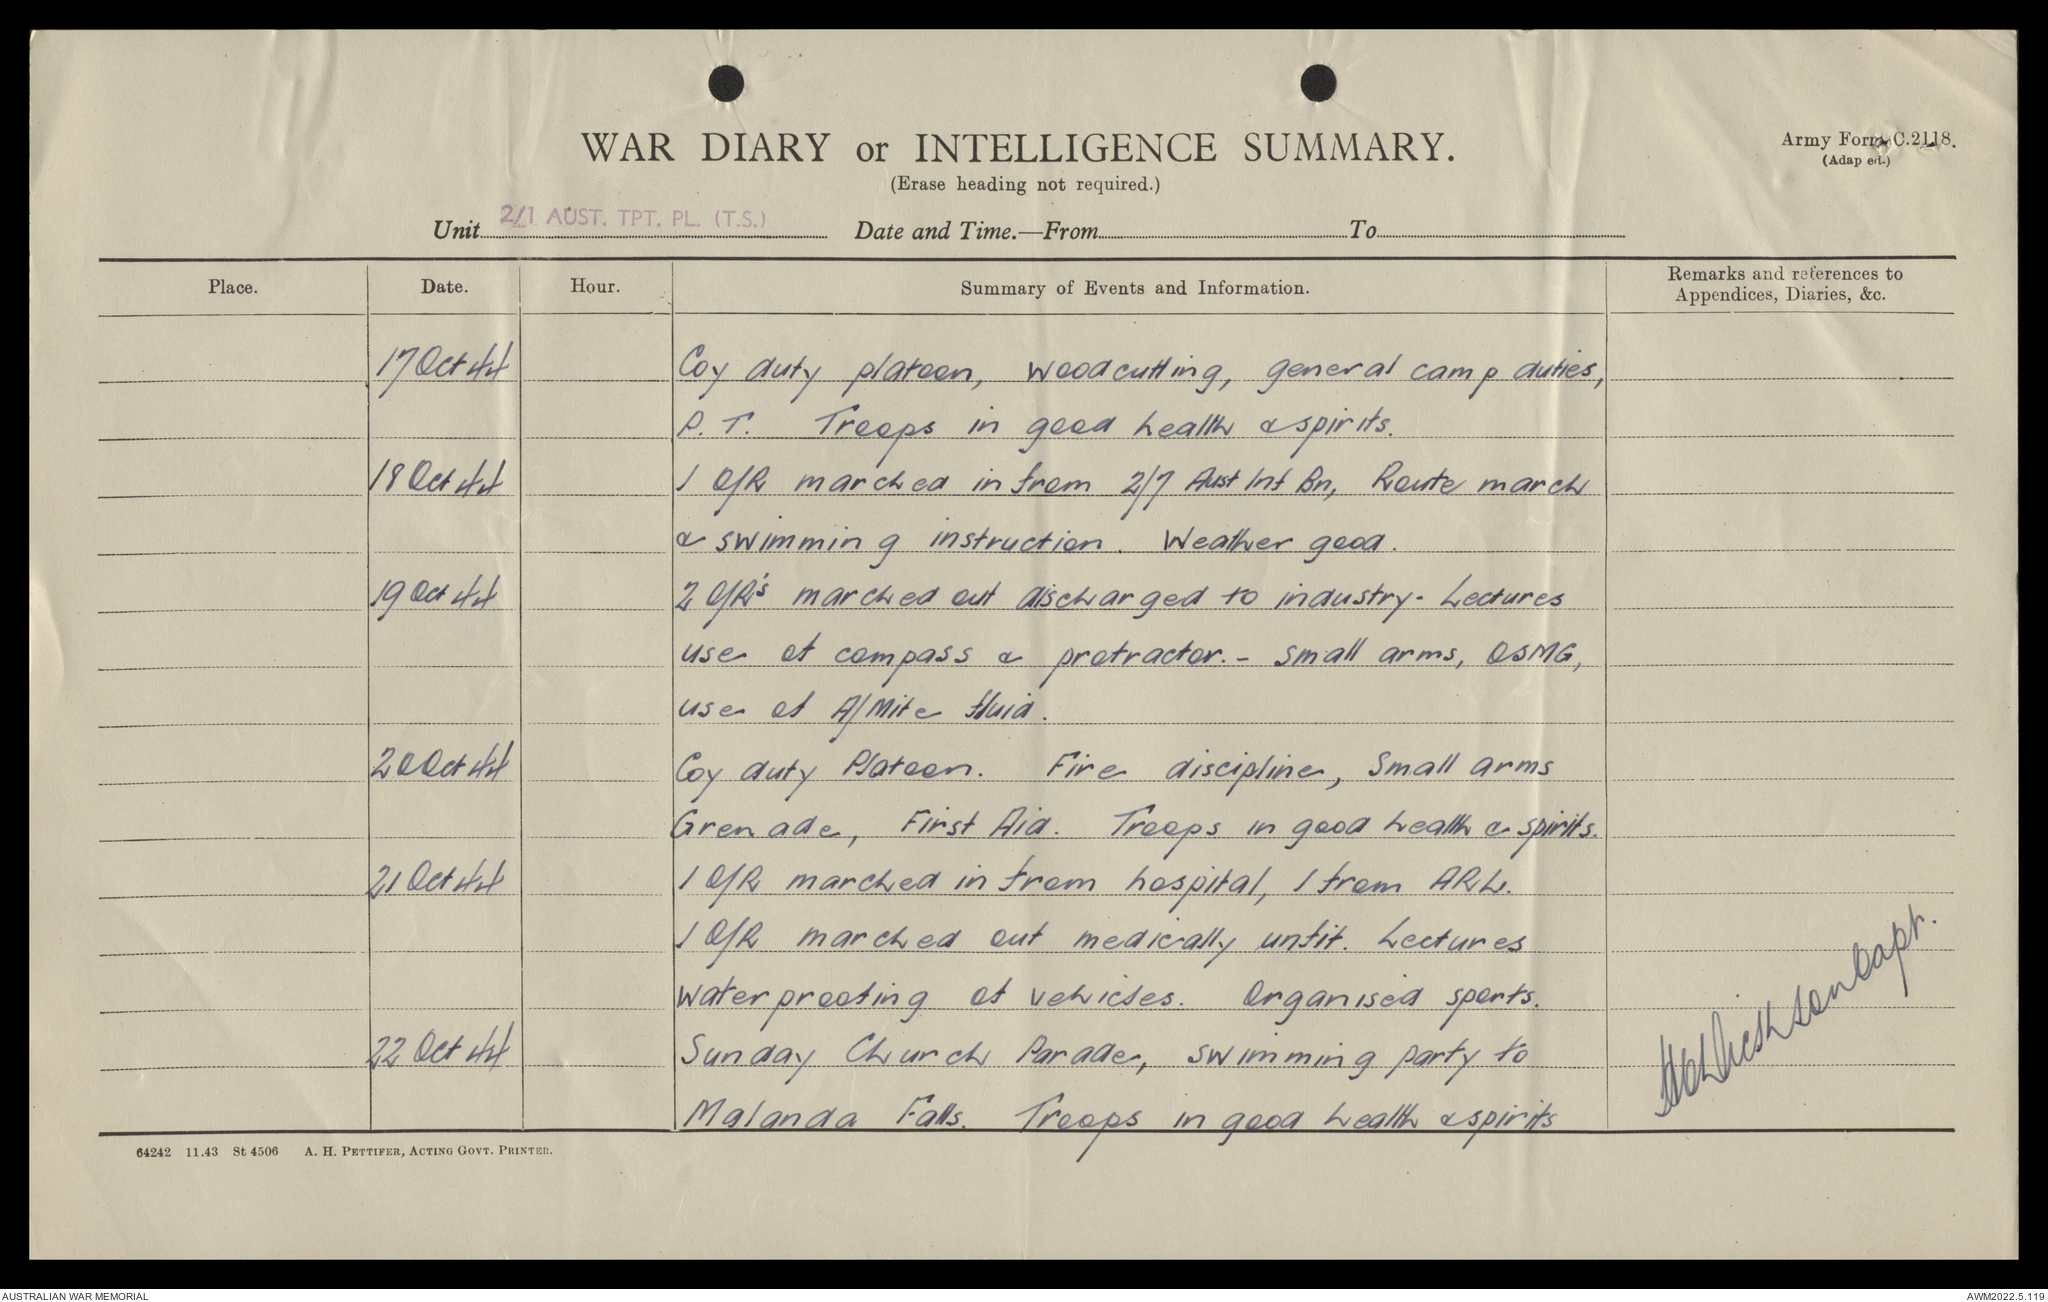 WAR DIARY or INTELLIGENCE SUMMARY.
Army Form C.2118.
(Adapted.)
(Erase heading not required.)
Unit 2/1 AUST. TPT. PL. (T.S.) Date and Time.—From To
Place. Date. Hour. Summary of Events and Information. Remarks and references to
Appendices, Diaries, &c.
17 Oct 44 Coy duty platoon, woodcutting, general camp duties,
P.T. Troops in good health & spirits.
18 Oct 44 1 O/R marched in from 2/7 Aust Inf Bn, Route march
& swimming instruction. Weather good.
19 Oct 44 2 O/R's marched out discharged to industry - Lectures
use of compass & protractor. - small arms, OSMG,
use of A/Mite fluid.
20 Oct 44 Coy duty Platoon. Fire discipline, Small arms
Grenade, First Aid. Troops in good health & spirits.
21 Oct 44 1 O/R marched in from hospital, 1 from ARL.
1 O/R marched out medically unfit. Lectures
waterproofing of vehicles. Organised sports.
22 Oct 44 Sunday Church Parade, swimming party to
Malanda Falls. Troops in good health & spirits
Capt.
64242 11.43 St 4506 A. H. PETTIFER, ACTING GOVT. PRINTER.
AUSTRALIAN WAR MEMORIAL AWM2022.5.119